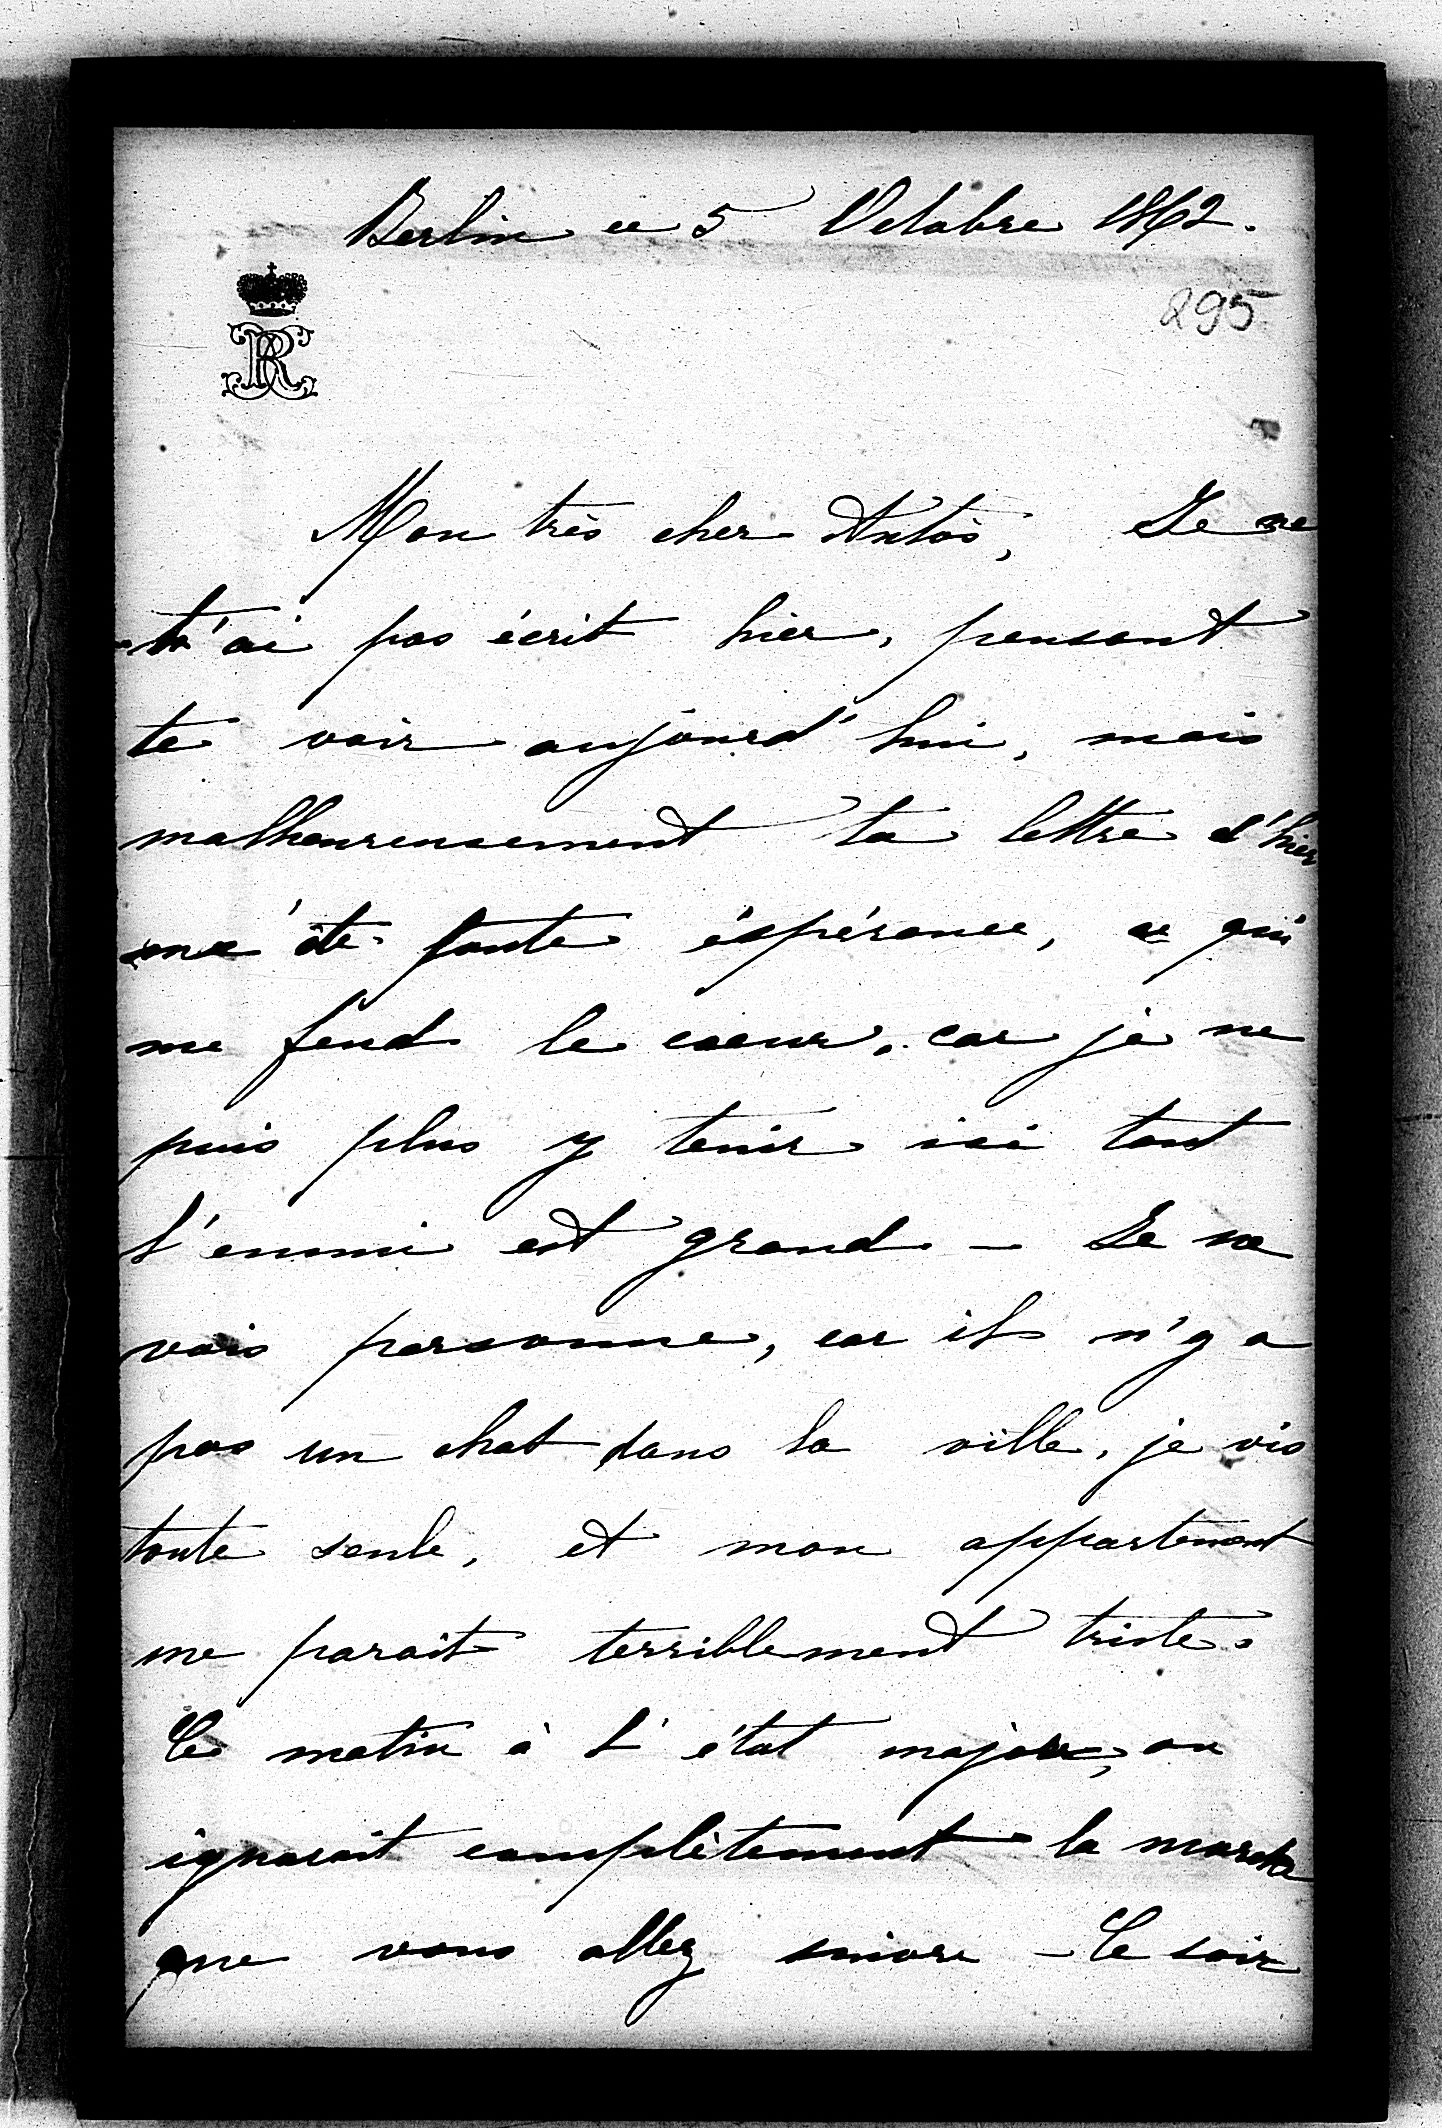 Berlin ce 5 Octobre 1862.
295
Mon très cher Antòs, Je ne
t'ai pas écrit hier, pensant
te voir aujourd'hui, mais
malheureusement ta lettre d'hier
me ôte toute éspérance, ce qui
me fend le coeur, car je ne
puis plus y tenir ici tant
l'ennui est grand — Je ne
vois personne, car il n'y a
pas un chat dans la ville, je vis
toute seule, et mon appartement
me parait terriblement triste.
Ce matin à l'état major, on
ignorait complètement la marche
que vous allez suivre — Ce soir